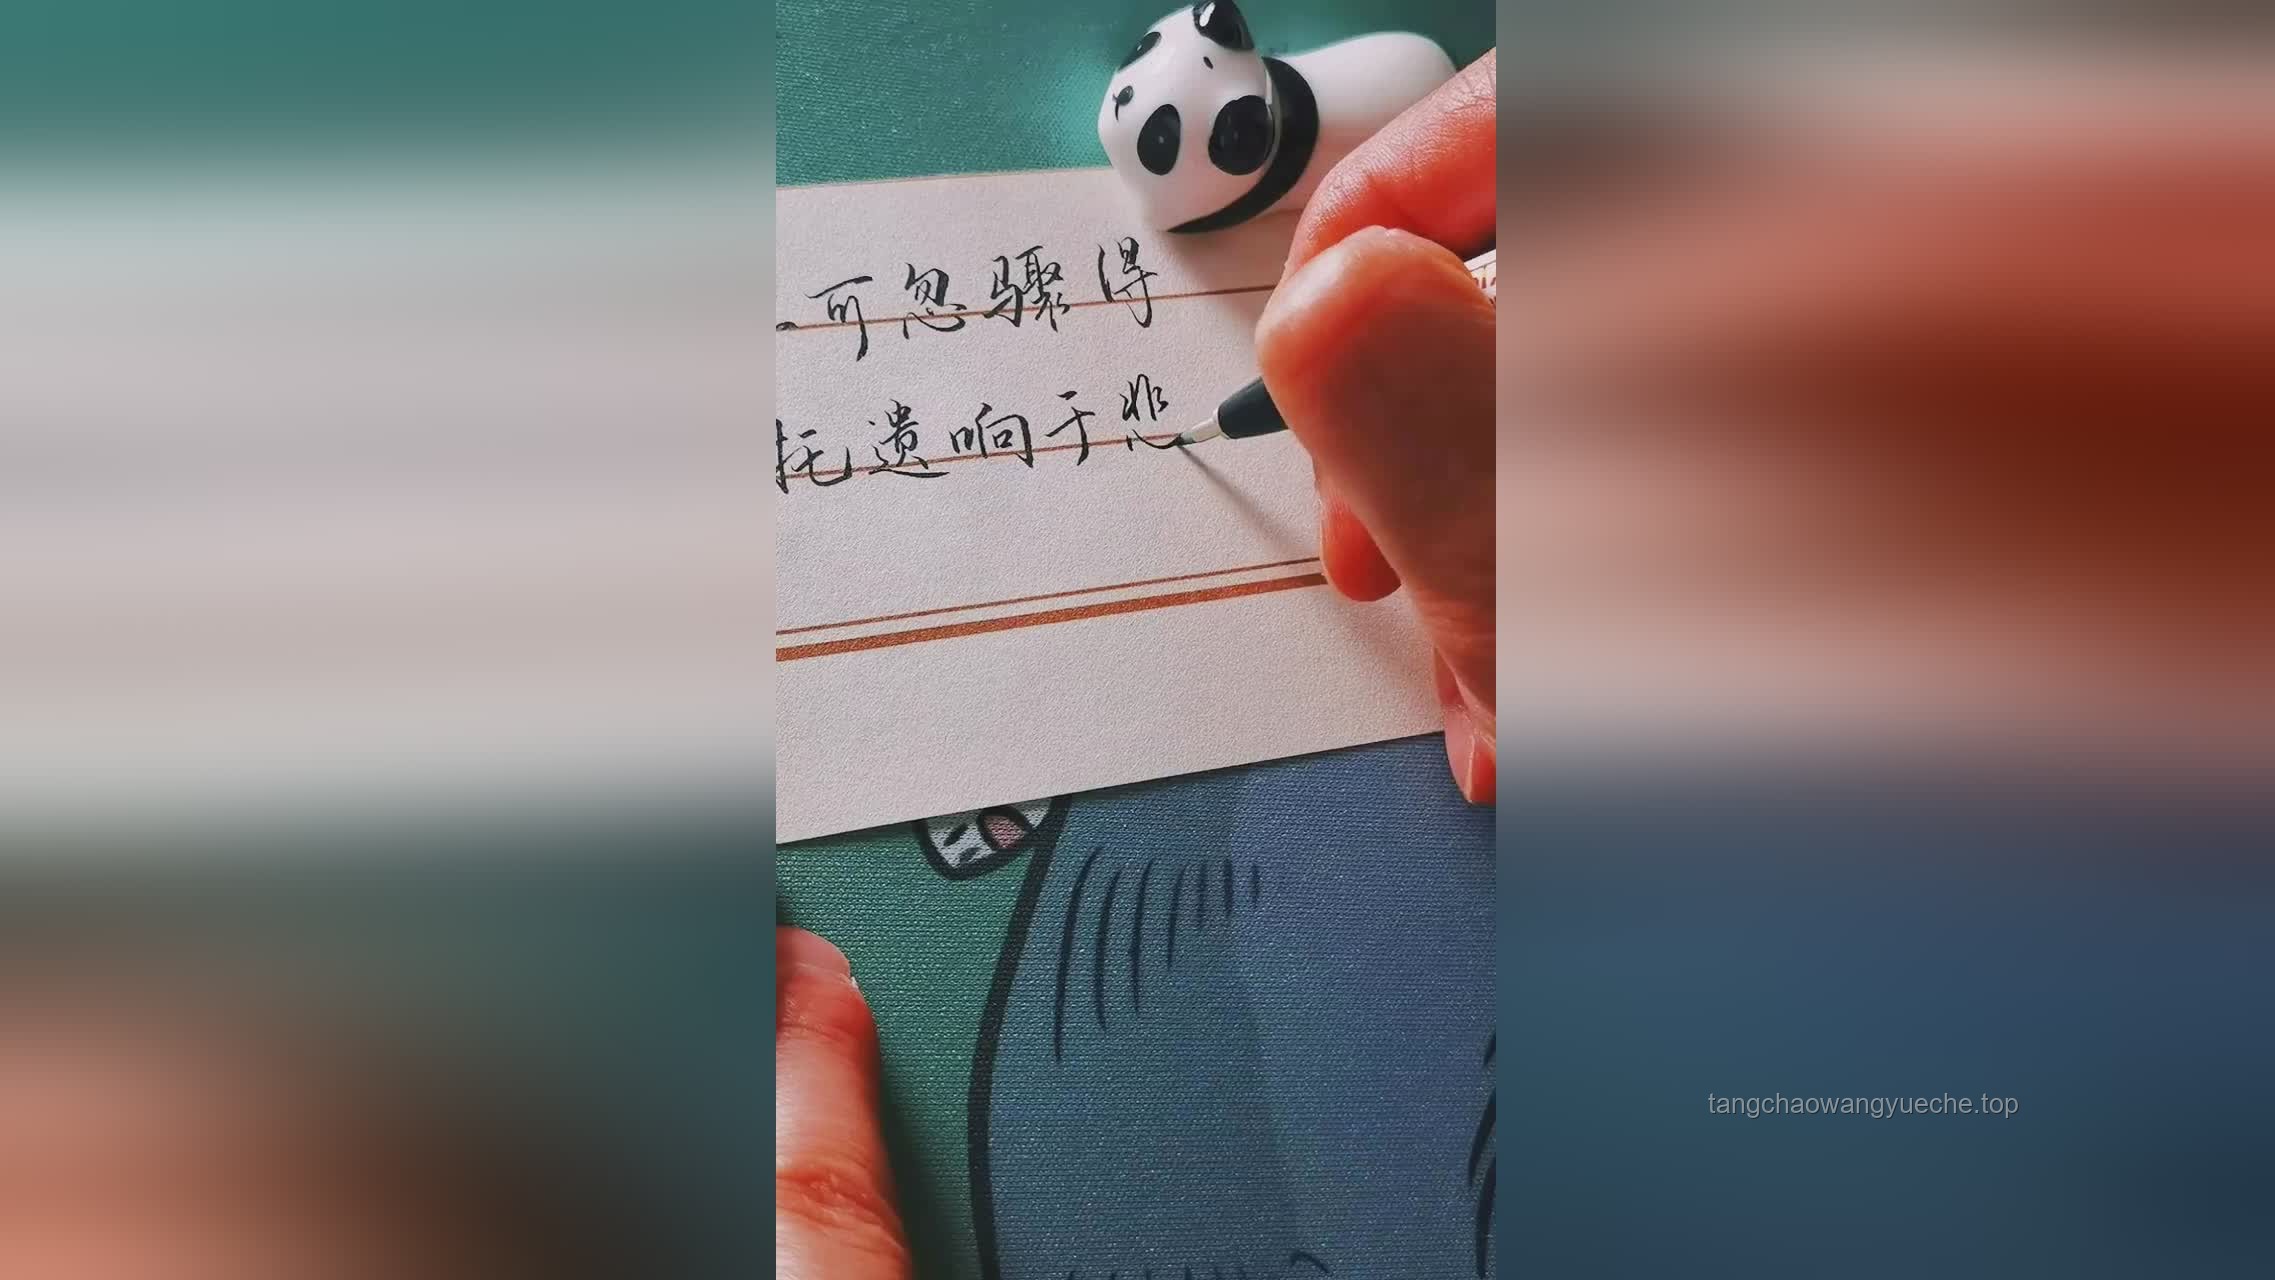 可忽骤得
托遗响于悲
tangchaowangyueche.top